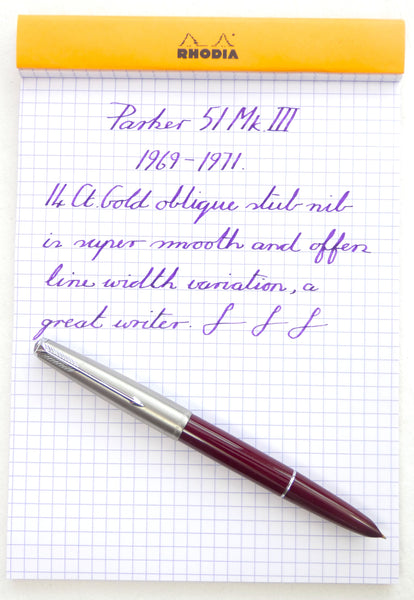 RHODIA
Parker 51 Mk.III
1969-1971.
14 Ct. Gold oblique stub nib
is super smooth and offers
line width variation, a
great writer. f f f